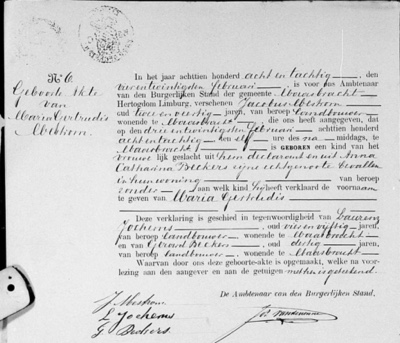 N. 6
Geboorte Akte
van
Maria Gertrudis
In het jaar achttien honderd acht en tachtig, den
vier en twintigsten februari is voor ons Ambtenaar
van den Burgerlijken Stand der gemeente Maasbracht
Hertogdom Limburg, verschenen Jacobus
oud twee en veertig jaren, van beroep Landbouwer
wonende te Maasbracht, die ons heeft aangegeven, dat
op den drie en twintigsten februari achttien honderd
acht en tachtig, ten elf ure des na middags, te
Maasbracht is GEBOREN een kind van het
vrouwelijk geslacht uit hem declarant en uit Anna
Catharina Beckers zijne echtgenoote bevallen
in hun woning van beroep
zonder aan welk kind hij heeft verklaard de voornaam
te geven van Maria Gertrudis
Deze verklaring is geschied in tegenwoordigheid van Laurens
Jochems, oud vier en vijftig jaren,
van beroep Landbouwer, wonende te Maasbracht
en van Gerard Beckers, oud dertig jaren,
van beroep Landbouwer, wonende te Maasbracht
Waarvan door ons deze geboorte-akte is opgemaakt, welke na voor-
lezing aan den aangever en aan de getuigen met hen is geteekend.
De Ambtenaar van den Burgerlijken Stand,
L. Jochems
G. Beckers